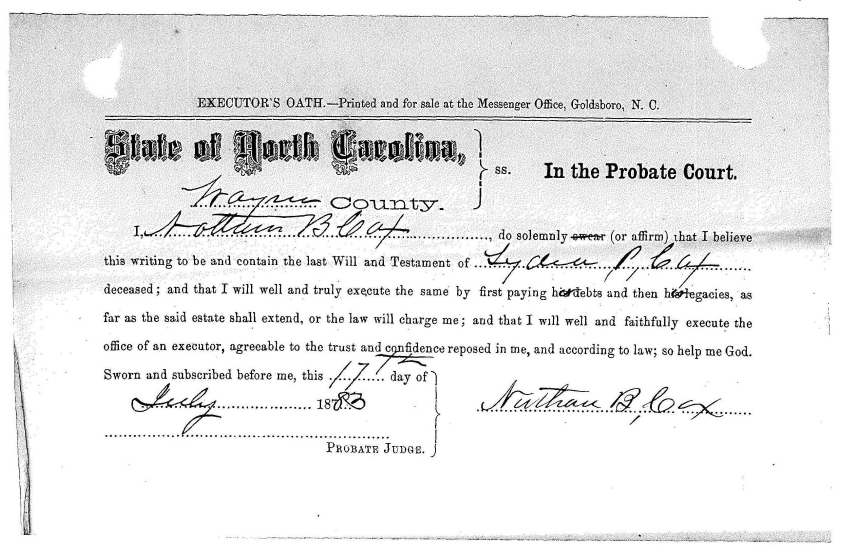 EXECUTOR'S OATH.—Printed and for sale at the Messenger Office, Goldsboro, N. C.
State of North Carolina,
ss. In the Probate Court.
Wayne County.
I, Nathan B Cox, do solemnly swear (or affirm) that I believe
this writing to be and contain the last Will and Testament of Lydia P, Cox
deceased; and that I will well and truly execute the same by first paying her debts and then her legacies, as
far as the said estate shall extend, or the law will charge me; and that I will well and faithfully execute the
office of an executor, agreeable to the trust and confidence reposed in me, and according to law; so help me God.
Sworn and subscribed before me, this 17th day of
July 1883
Nathan B, Cox
PROBATE JUDGE.